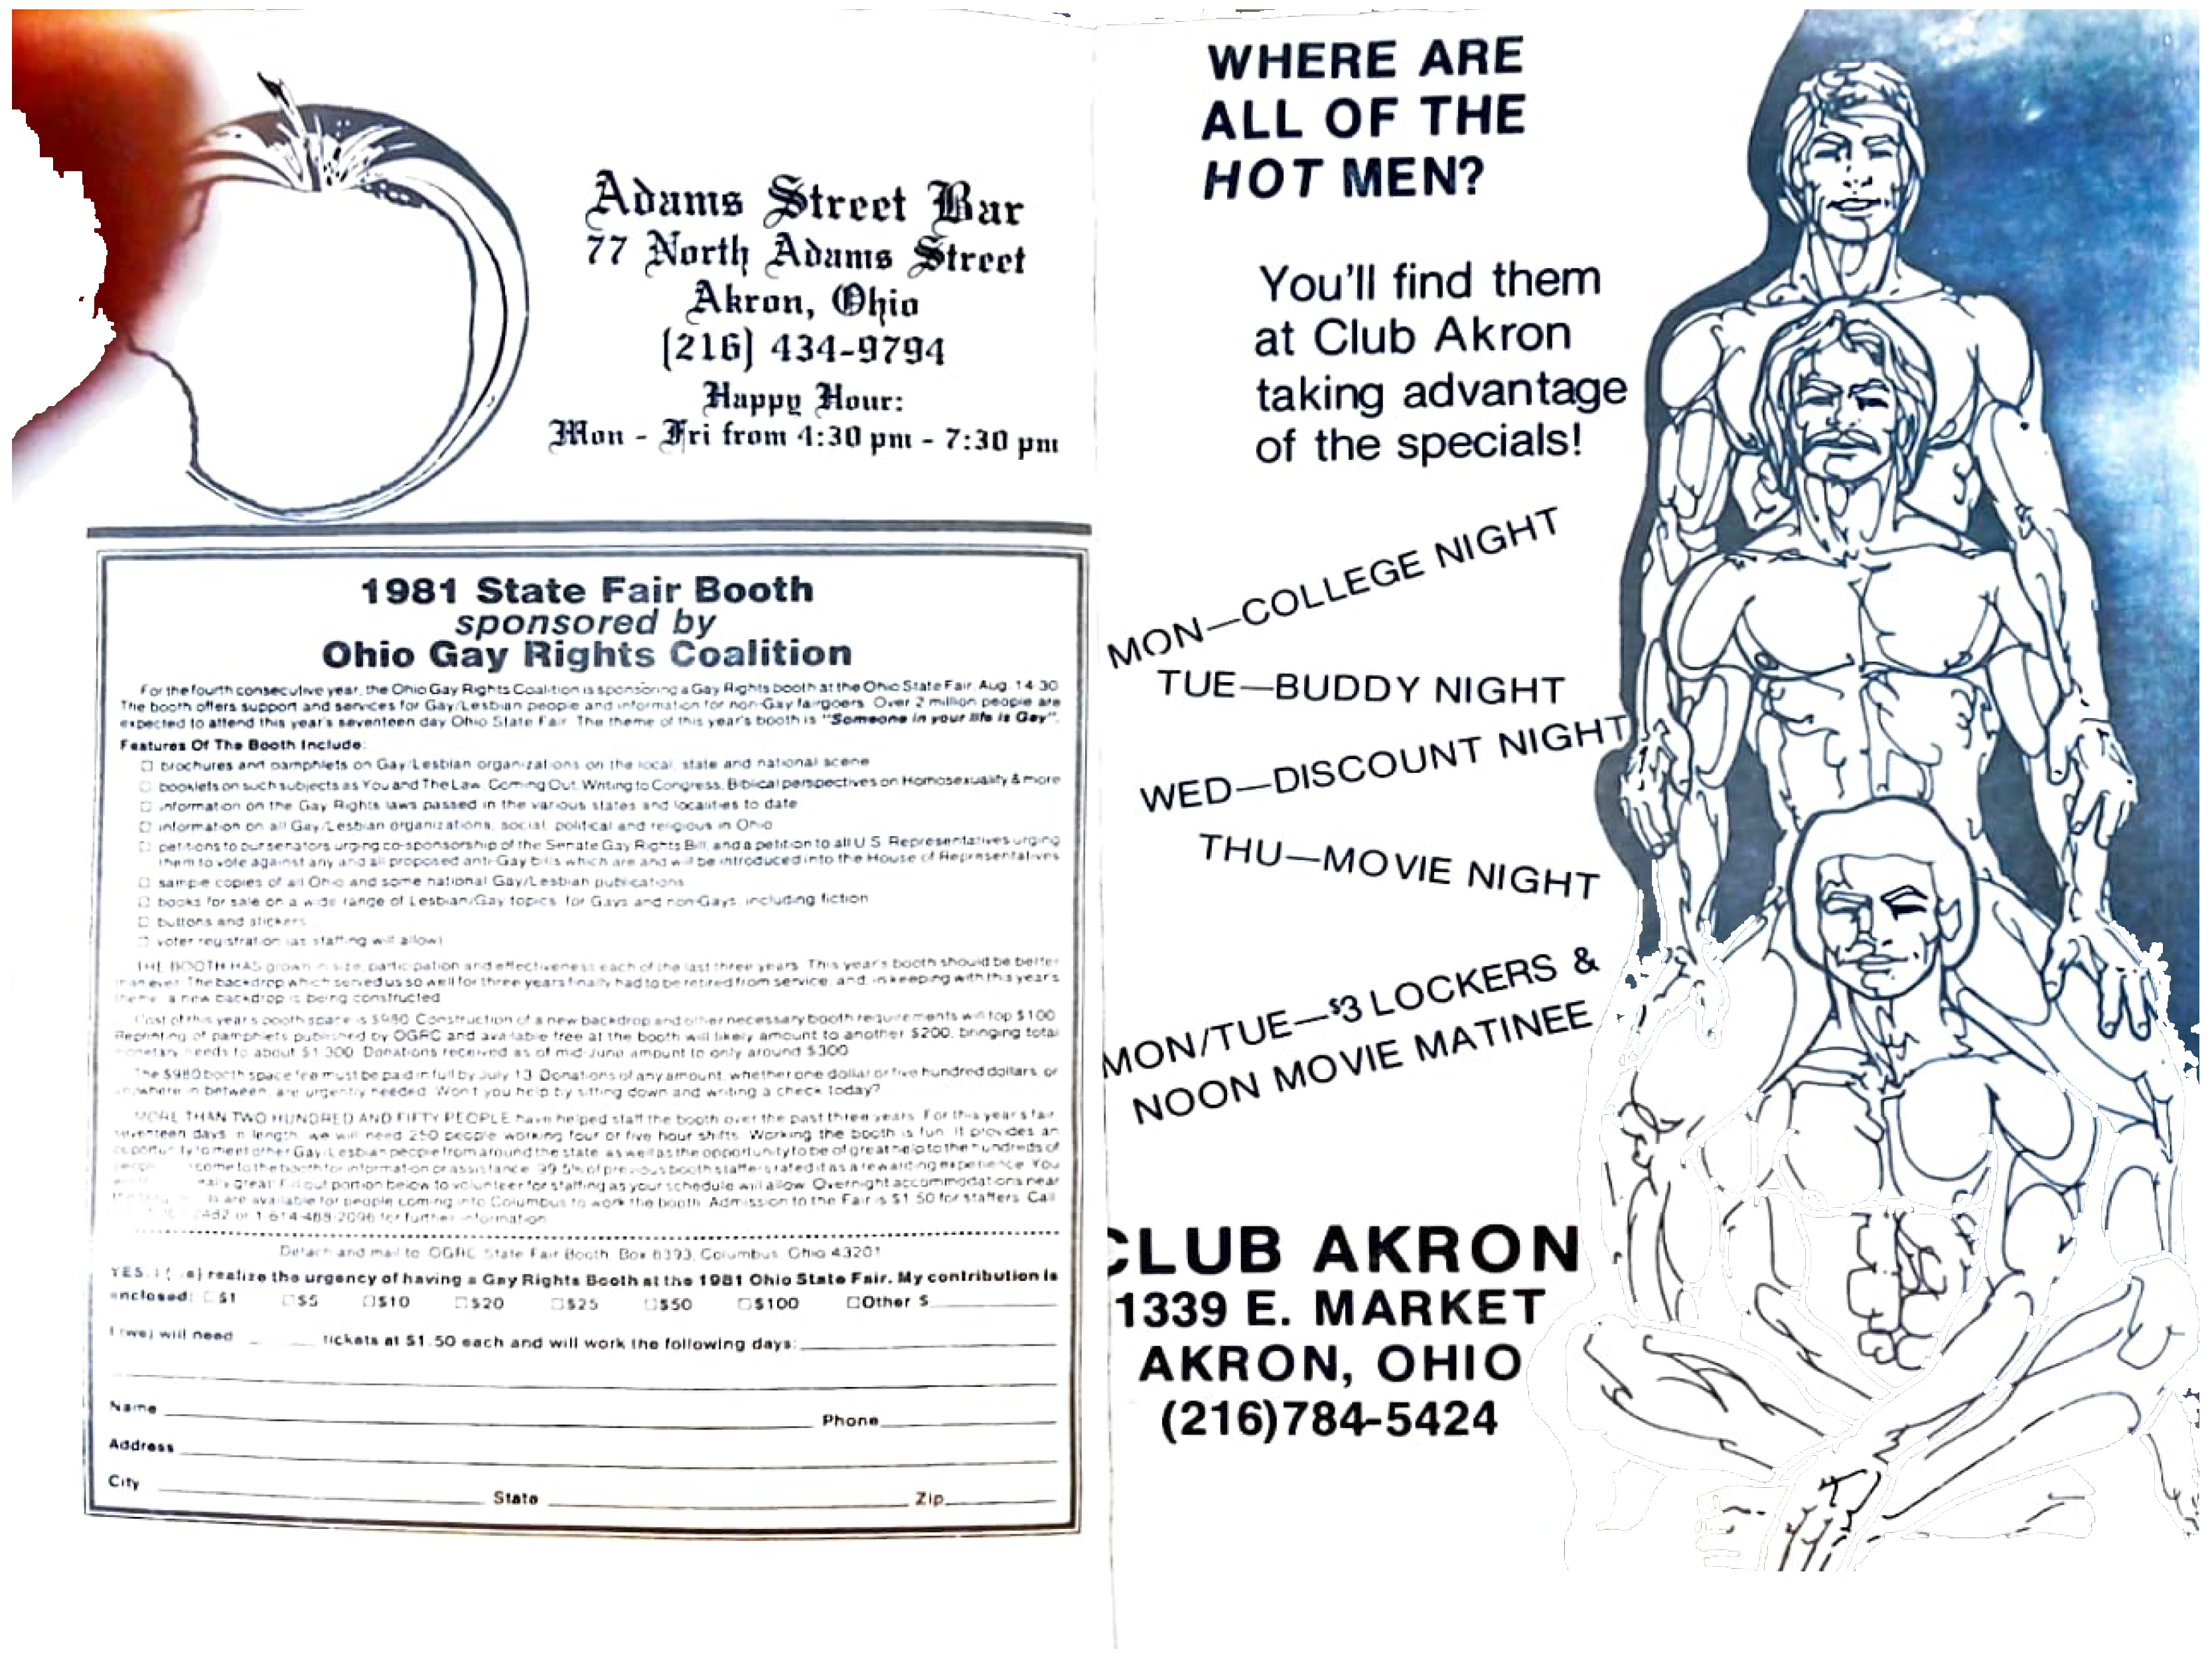 Adams Street Bar
77 North Adams Street
Akron, Ohio
(216) 434-9794
Happy Hour:
Mon - Fri from 4:30 pm - 7:30 pm
1981 State Fair Booth
sponsored by
Ohio Gay Rights Coalition
For the fourth consecutive year, the Ohio Gay Rights Coalition is sponsoring a Gay Rights booth at the Ohio State Fair, Aug. 14-30
The booth offers support and services for Gay/Lesbian people and information for non-Gay fairgoers. Over 2 million people are
expected to attend this year's seventeen day Ohio State Fair. The theme of this year's booth is "Someone in your life is Gay".
Features Of The Booth Include:
☐ brochures and pamphlets on Gay/Lesbian organizations on the local, state and national scene
☐ booklets on such subjects as You and The Law, Coming Out, Writing to Congress, Biblical perspectives on Homosexuality & more
☐ information on the Gay Rights laws passed in the various states and localities to date
☐ information on all Gay/Lesbian organizations, social, political and religious in Ohio
☐ petitions to our senators urging co-sponsorship of the Senate Gay Rights Bill, and a petition to all U.S. Representatives urging
them to vote against any and all proposed anti-Gay bills which are and will be introduced into the House of Representatives
☐ sample copies of all Ohio and some national Gay/Lesbian publications
☐ books for sale on a wide range of Lesbian/Gay topics, for Gays and non-Gays, including fiction
☐ buttons and stickers
☐ voter registration (as staffing will allow)
THE BOOTH HAS grown in size, participation and effectiveness each of the last three years. This year's booth should be better
than ever. The backdrop which served us so well for three years finally had to be retired from service, and, in keeping with this year's
theme, a new backdrop is being constructed.
Cost of this year's booth space is $980. Construction of a new backdrop and other necessary booth requirements will top $100.
Reprinting of pamphlets published by OGRC and available free at the booth will likely amount to another $200, bringing total
monetary needs to about $1,300. Donations received as of mid-June amount to only around $300.
The $980 booth space fee must be paid in full by July 13. Donations of any amount, whether one dollar or five hundred dollars, or
anywhere in between, are urgently needed. Won't you help by sitting down and writing a check today?
MORE THAN TWO HUNDRED AND FIFTY PEOPLE have helped staff the booth over the past three years. For this year's fair,
seventeen days in length, we will need 250 people working four or five hour shifts. Working the booth is fun. It provides an
opportunity to meet other Gay/Lesbian people from around the state as well as the opportunity to be of great help to the hundreds of
come to the booth for information or assistance. 99.5% of previous booth staffers rated it as a rewarding experience. You
great. Fill out portion below to volunteer for staffing as your schedule will allow. Overnight accommodations near
are available for people coming into Columbus to work the booth. Admission to the Fair is $1.50 for staffers. Call
2482 or 1-614-488-2096 for further information.
Detach and mail to: OGRC State Fair Booth, Box 8393, Columbus, Ohio 43201
YES, I realize the urgency of having a Gay Rights Booth at the 1981 Ohio State Fair. My contribution is
enclosed: ☐ $1 ☐ $5 ☐ $10 ☐ $20 ☐ $25 ☐ $50 ☐ $100 ☐ Other $
I (we) will need tickets at $1.50 each and will work the following days:
Name Phone
Address
City State Zip
WHERE ARE
ALL OF THE
HOT MEN?
You'll find them
at Club Akron
taking advantage
of the specials!
MON—COLLEGE NIGHT
TUE—BUDDY NIGHT
WED—DISCOUNT NIGHT
THU—MOVIE NIGHT
MON/TUE—$3 LOCKERS &
NOON MOVIE MATINEE
CLUB AKRON
1339 E. MARKET
AKRON, OHIO
(216)784-5424